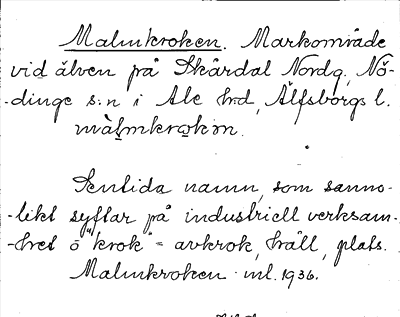 Malmkroken. Markområde
vid älven på Skårdal Nordg, Nö-
-dinge s:n i Ale hrd, Älfsborgs l.
màl̥mkro̥kən.
Sentida namn, som sanno-
-likt syftar på industriell verksam-
-het o "krok" = avkrok, håll, plats.
Malmkroken inl. 1936.